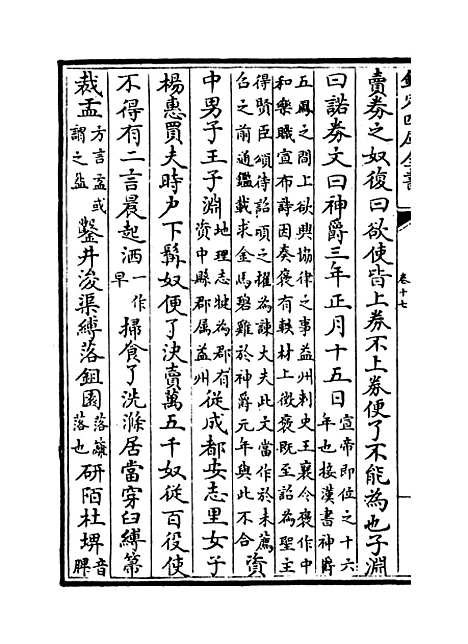 欽定四庫全書
卷十七
賣券之奴復曰欲使皆上券不上券便了不能為也子淵
曰諾券文曰神爵三年正月十五日宣帝即位之十六年也按漢書神爵
五鳳之間上欲興協律之事益州刺史王襄令褒作中和樂職宣布詩因奏褒有軼材上徴褒既至詔為聖主
得賢臣頌待詔頃之擢為諫大夫此文當作於未薦召之前通鑑載求金馬碧雞於神爵元年與此不合資
中男子王子淵地理志犍為郡有資中縣郡屬益州從成都安志里女子
楊惠買夫時户下髯奴便了決賣萬五千奴從百役使
不得有二言晨起洒一作早掃食了洗滌居當穿臼縛箒
裁盂方言盂或謂之盌鑿井浚渠縛落鉏園落籬落也研陌杜埤音脾